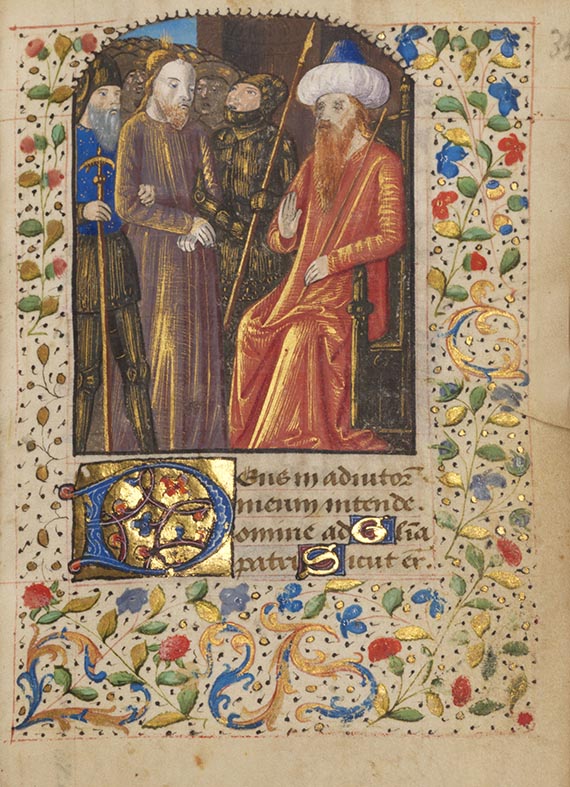 Deus in adiutor̄
meum intende
omine ad Gl̄ia
patri Sicut er̄.